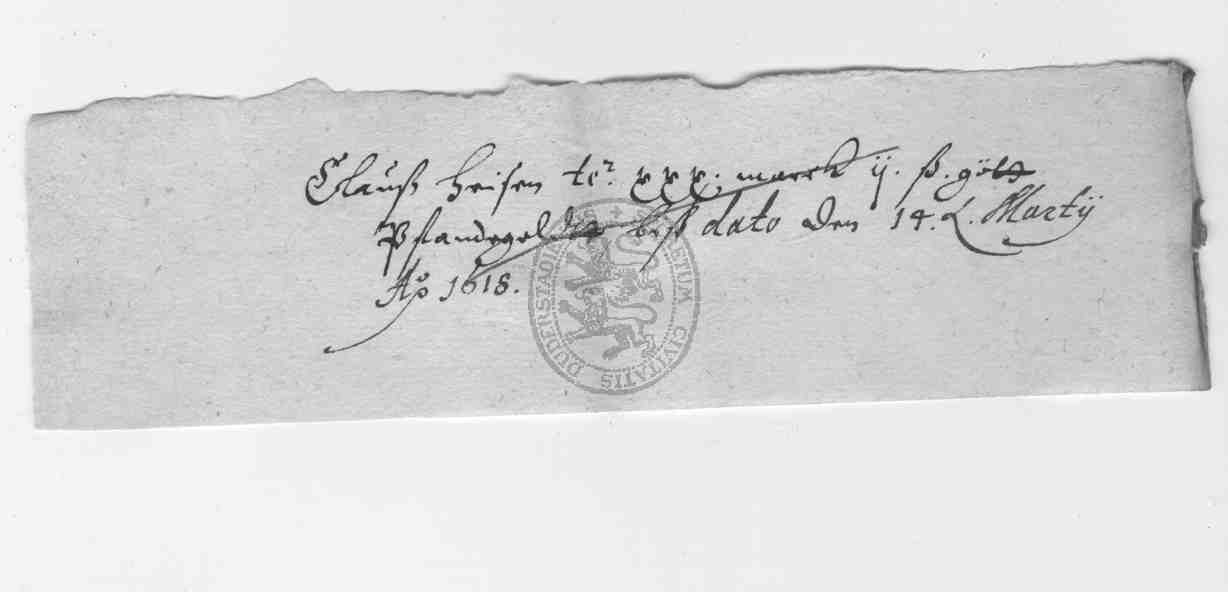 Clauß Heisen te.r xxx. marck ij. ß. gött
Pfandegelder biß dato den 14. L. Martij
Ao 1618.
SECRETUM CIVITATIS DUDERSTADIENSIS